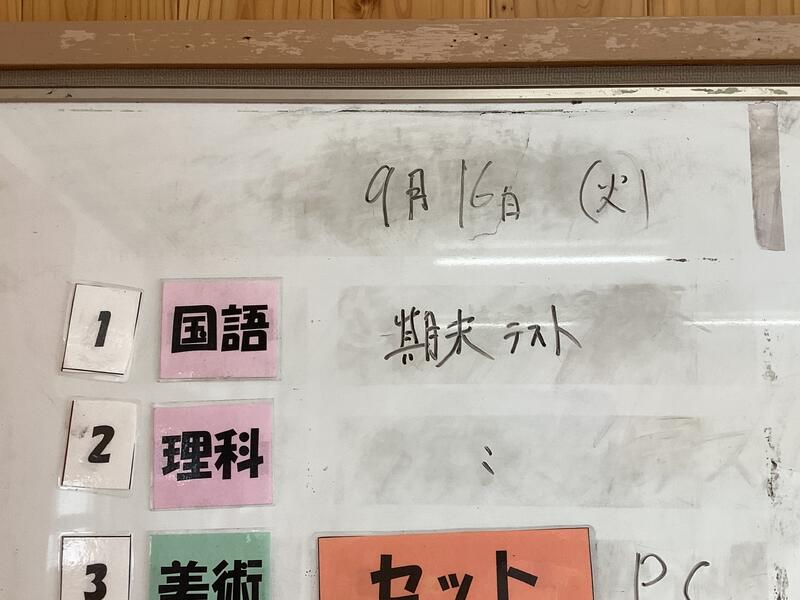 9月16日 (火)
1 国語 期末テスト
2 理科 〃
3 美術 セット PC